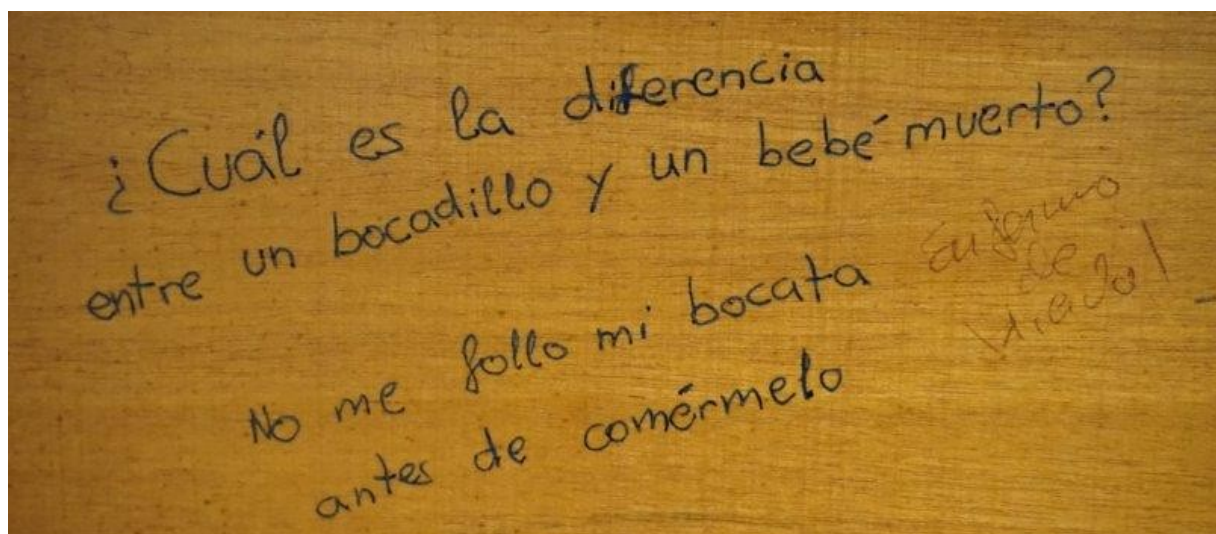 ¿Cuál es la diferencia
entre un bocadillo y un bebé muerto?
No me follo mi bocata
antes de comérmelo
Enfermo
de